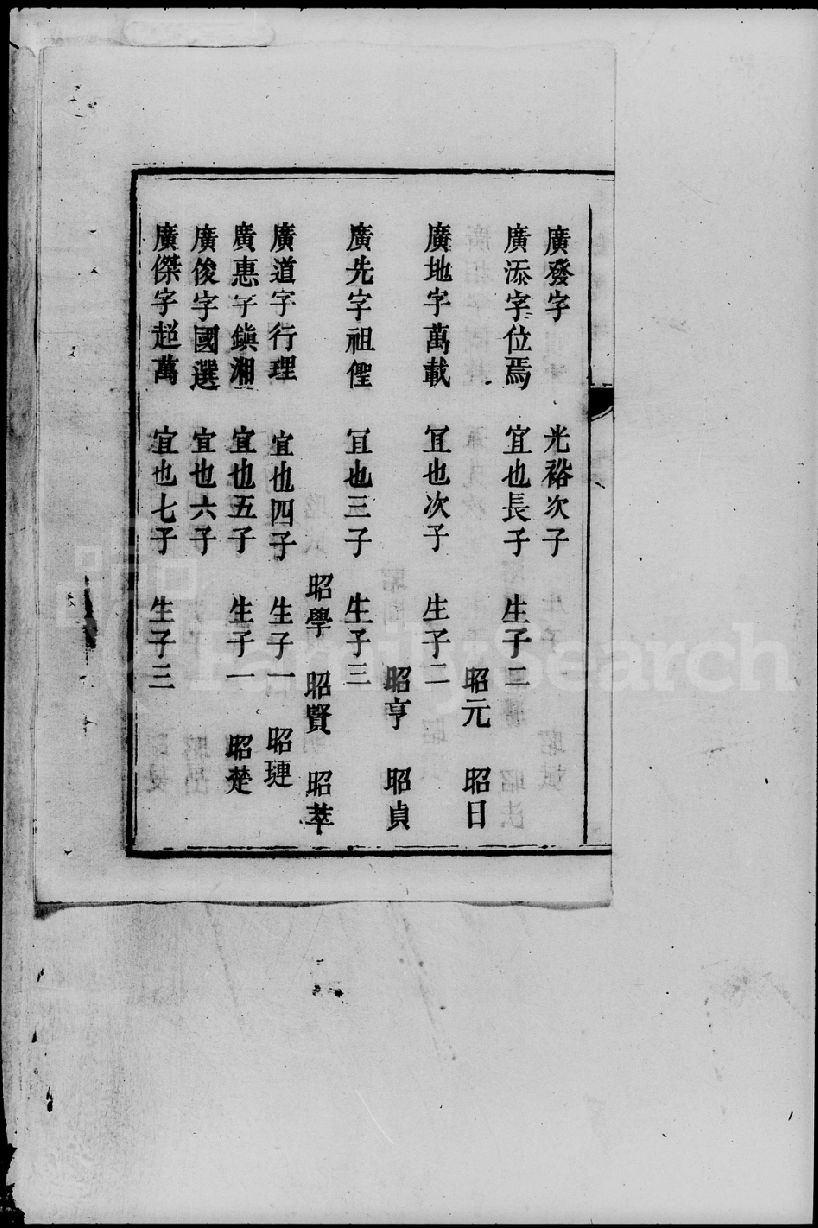 廣發字 光裕次子
廣添字位焉 宜也長子 生子二
昭元 昭日
廣地字萬載 宜也次子 生子二
昭亨 昭貞
廣先字祖俚 宜也三子 生子三
昭學 昭賢 昭萃
廣道字行理 宜也四子 生子一 昭璉
廣惠字鎮湘 宜也五子 生子一 昭楚
廣俊字國選 宜也六子
廣傑字超萬 宜也七子 生子三
FamilySearch